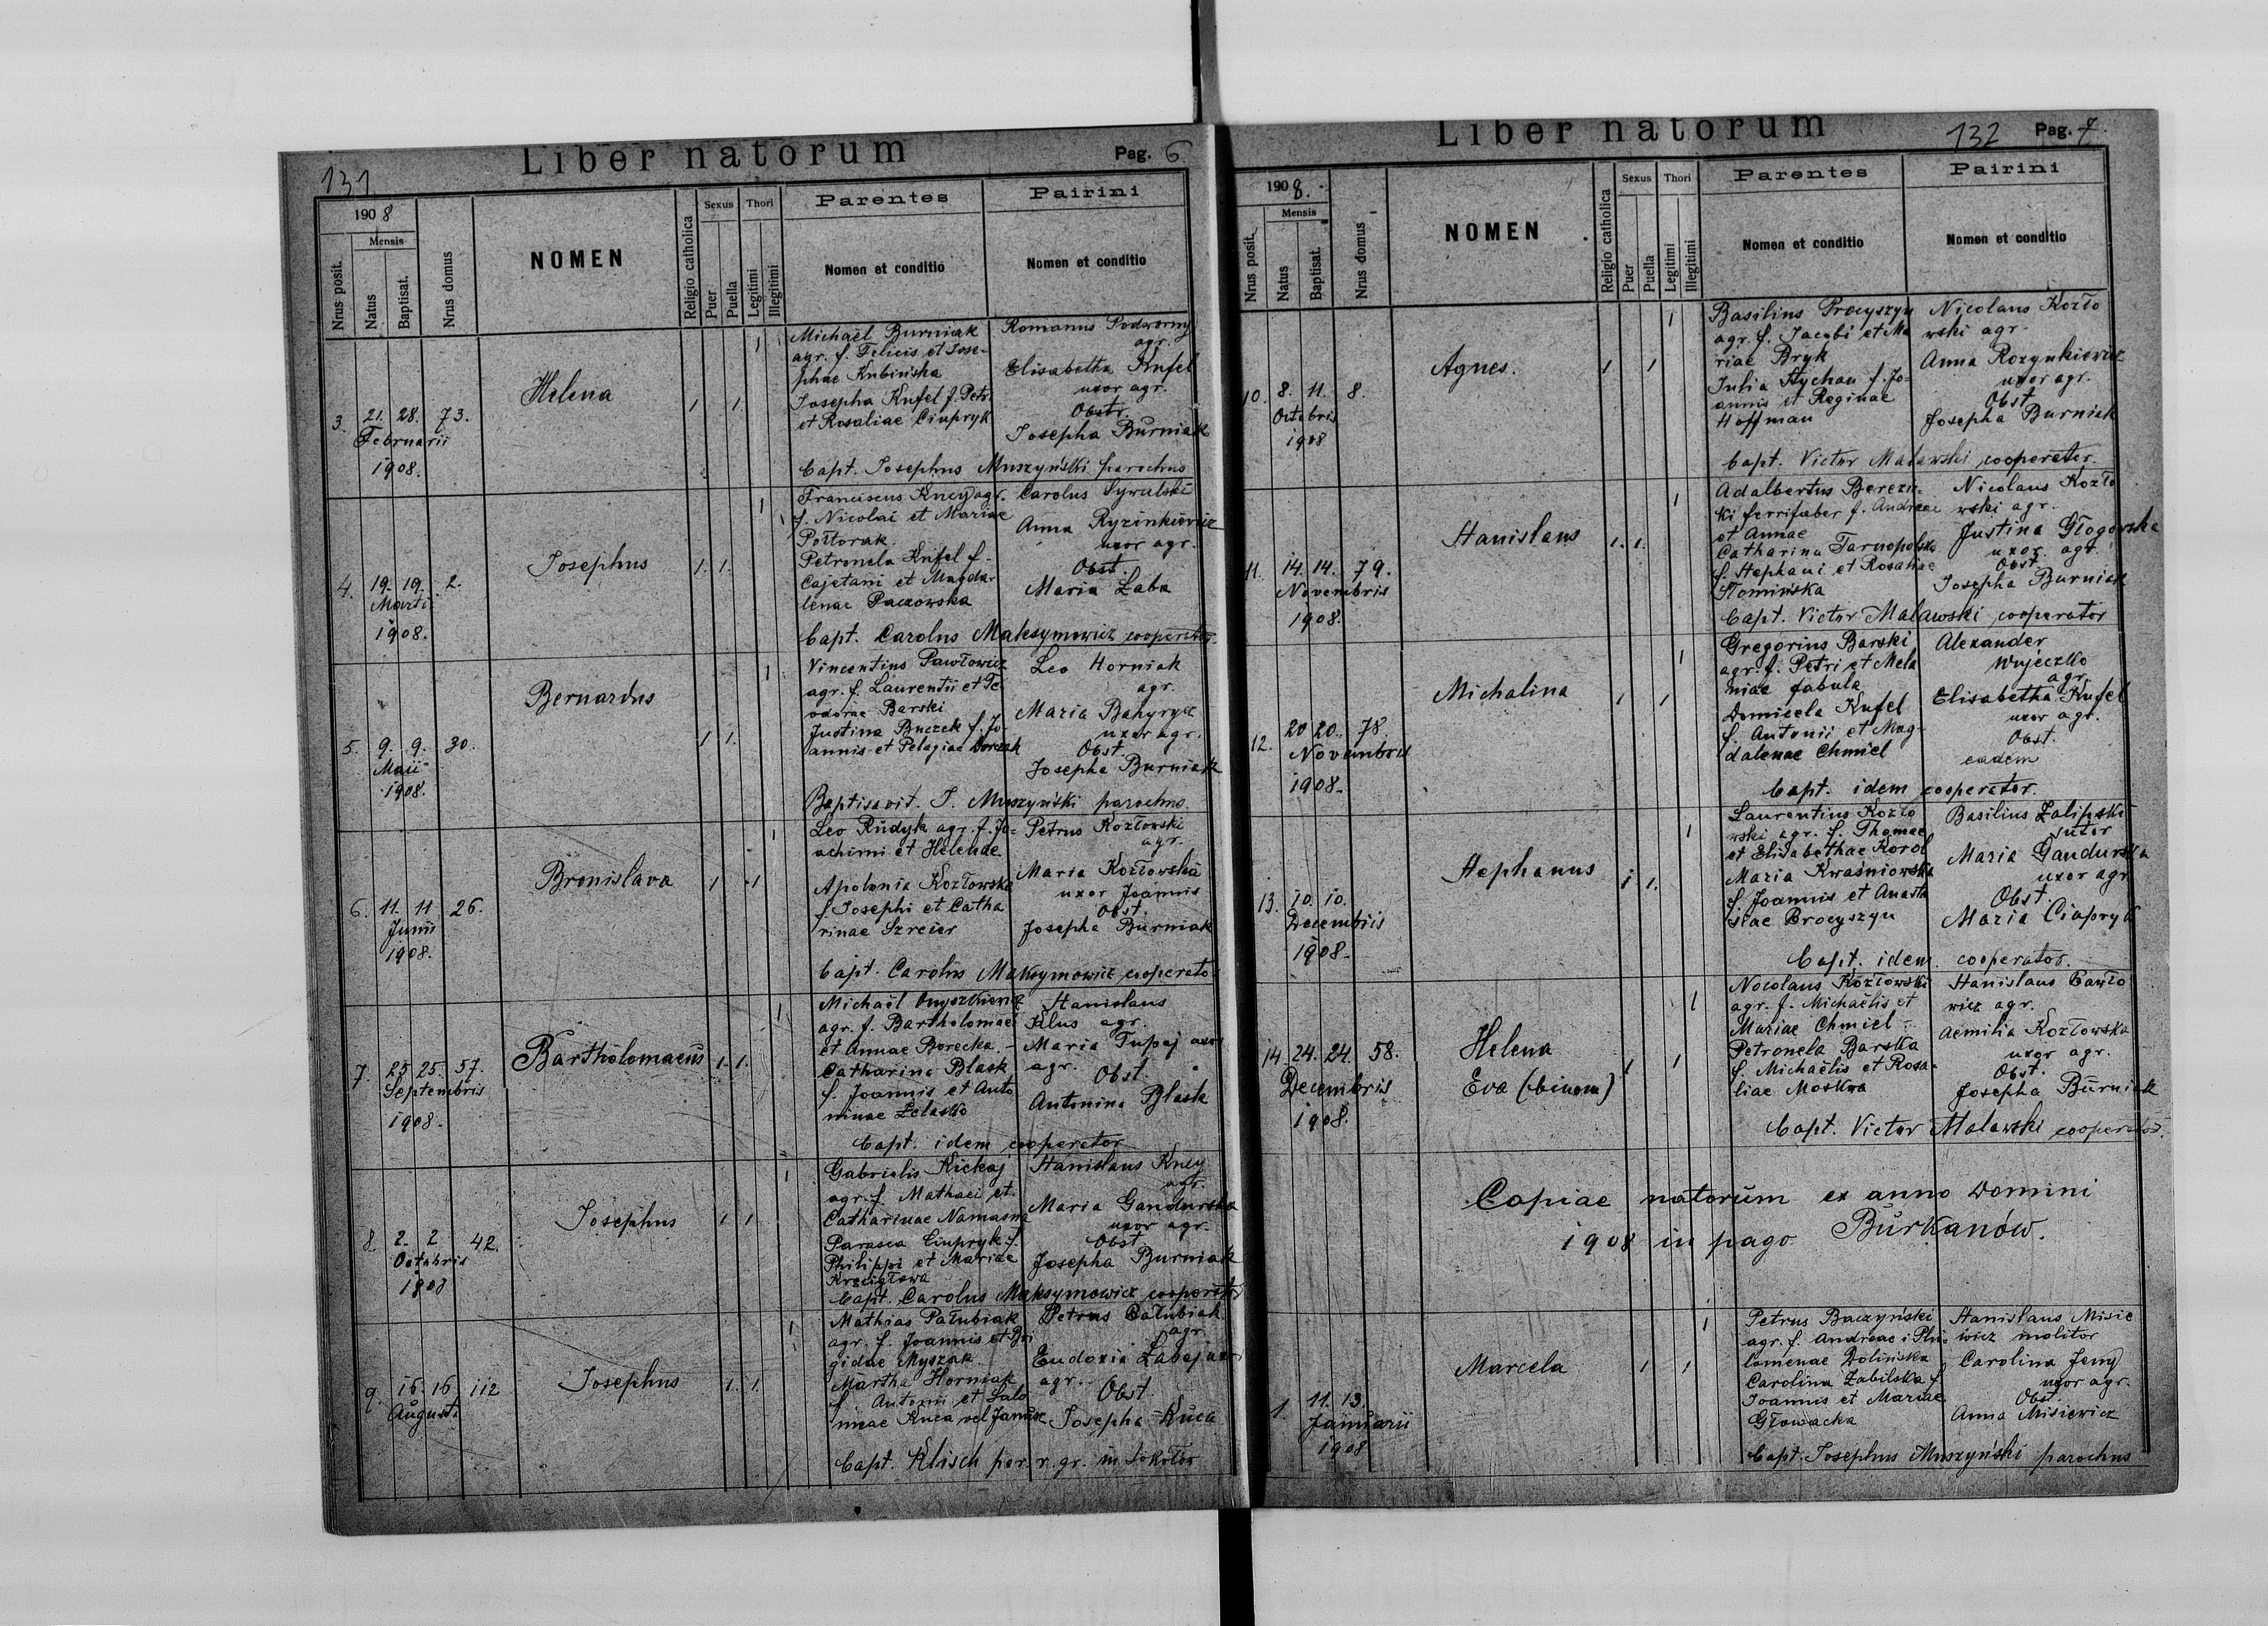 131
Liber natorum
Pag. 6
1908
Mensis
Nrus posit.
Natus
Baptisat.
Nrus domus
NOMEN
Religio catholica
Sexus
Puer
Puella
Thori
Legitimi
Illegitimi
Parentes
Nomen et conditio
Pairini
Nomen et conditio
3. 21. 28. 73.
Februarii
1908.
Helena
1 1. 1
Michaël Burniak
agr. f. Felicis et Jose-
phae Kubińska
Josepha Kufel f. Petr.
et Rosaliae Ciupryk
Romanus Podworny
agr.
Elisabetha Kufel
uxor agr.
Obstr.
Josepha Burniak
bapt. Josephus Muszyński parochus
4. 19. 19. 2.
Marti
1908.
Josephus
1. 1. 1
Franciscus Kney agr.
f. Nicolai et Mariae
Półtorak
Petronela Kufel f.
Cajetani et Magda-
lenae Paczowska
Carolus Sywulski
Anna Ryzinkiewicz
uxor agr.
Obst.
Maria Laba
bapt. Carolus Maksymowicz cooperator.
5. 9. 9. 30.
Maii
1908.
Bernardus
1 1. 1
Vincentius Pawłowicz
agr. f. Laurentii et Te
odoriae Barski
Justina Buczek f. Jo-
annis et Pelagiae
Leo Horniak
agr.
Maria Bahyrycz
uxor agr.
Obst.
Josepha Burniak
Baptisavit. J. Muszyński parochus.
6. 11. 11 26.
Junii
1908.
Bronislava
1 1 1
Leo Rudyk agr. f. Jo-
achimi et Helenae
Apolonia Kozłowska
f. Josephi et Catha
rinae Szreier
Petrus Kozłowski
agr.
Maria Kozłowska
uxor Joannis
Obst.
Josepha Burniak
bapt. Carolus Maksymowicz cooperato
7. 25 25. 57.
Septembris
1908.
Bartholomaeus
1. 1. 1
Michaël Onyszkiewicz
agr. f. Bartholomaei
et Annae Borecka -
Catharina Blask
f. Joannis et Anto
ninae Żelasko
Stanislaus
Klus agr.
Maria Tupaj uxor
agr.
Obst.
Antonina Blask
bapt. idem cooperator
8. 2. 2 42.
Octobris
1908
Josephus
1 1 1
Gabrielis Kickaj
agr. f. Mathaei et
Catharinae Namasna
Parasca Ciupryk f.
Philippi et Mariae
Stanislaus Kney
agr.
Maria Gandurska
uxor agr.
Obst
Josepha Burniak
bapt. Carolus Maksymowicz cooperator
9. 16. 16 112
Augusti
Josephus
1. 1. 1
Mathias Pałubiak
agr. f. Joannis et Bri
gidae Myszak.
Martha Horniak
f. Antonii et Salo
meae Kuca vel Janusz
Petrus Pałubiak
agr.
Eudoxia
agr.
Obst.
Josepha Kuca
bapt. Klisch par. r. gr. in Sokołów
Liber natorum
132
Pag. 7.
1908.
Mensis
Nrus posit.
Natus
Baptisat.
Nrus domus
NOMEN
Religio catholica
Sexus
Puer
Puella
Thori
Legitimi
Illegitimi
Parentes
Nomen et conditio
Pairini
Nomen et conditio
10. 8. 11. 8.
Octobris
1908
Agnes.
1 1 1
Basilius Procyszyn
agr. f. Jacobi et Ma
riae Bryk
Julia Stychau f. Jo-
annis et Reginae
Hoffman
Nicolaus Kozło
wski agr.
Anna Rozynkiewicz
uxor agr.
Obst
Josepha Burniak
bapt. Victor Malawski cooperator.
11. 14. 14. 79.
Novembris
1908.
Stanislaus
1. 1. 1
Adalbertus Berezic
ki ferrifaber f. Andreae
et Annae
Catharina Tarnopolska
f. Stephani et Rosaliae
Słomińska
Nicolaus Kozło
wski agr.
Justina Głogowska
uxor. agr.
Obst
Josepha Burniak
bapt. Victor Malawski cooperator
12. 20 20. 78.
Novembris
1908.
Michalina
1 1 1
Gregorius Barski
agr. f. Petri et Mela
niae Fabula
Domicela Kufel
f. Antonii et Mag-
dalenae Chmiel
Alexander
Wujeczko
agr.
Elisabetha Kufel
uxor agr.
Obst.
eadem
bapt. idem cooperator.
13. 10. 10.
Decembris
1908.
Stephanus
1 1. 1
Laurentius Kozło
wski agr. f. Thomae
et Elisabethae Korol
Maria Kwaśniowska
f. Joannis et Anasta
siae Procyszyn
Basilius Zalipski
sutor
Maria Gandurska
uxor agr
Obst.
Maria Ciapryk
bapt. idem cooperator.
14. 24. 24. 58.
Decembris
1908.
Helena
Eva (binom)
1 1 1
Nocolaus Kozłowski
agr. f. Michaëlis et
Mariae Chmiel -
Petronela Barska
f. Michaëlis et Rosa-
liae Moskwa
Stanislaus Pawło
wicz agr.
Aemilia Kozłowska
uxor agr.
Obst.
Josepha Burniak
bapt. Victor Malawski cooperator.
Copiae natorum ex anno Domini
1908 in pago Burkanów.
1. 11. 13.
Januarii
1908
Marcela
1 1 1
Petrus Baczyński
agr. f. Andreae i Phi-
lomenae Dolińska
Carolina Zabilska f.
Joannis et Mariae
Głowacka
Stanislaus Misie
wicz molitor
Carolina Jeny
uxor agr.
Obst.
Anna Misiewicz
bapt. Josephus Muszyński parochus